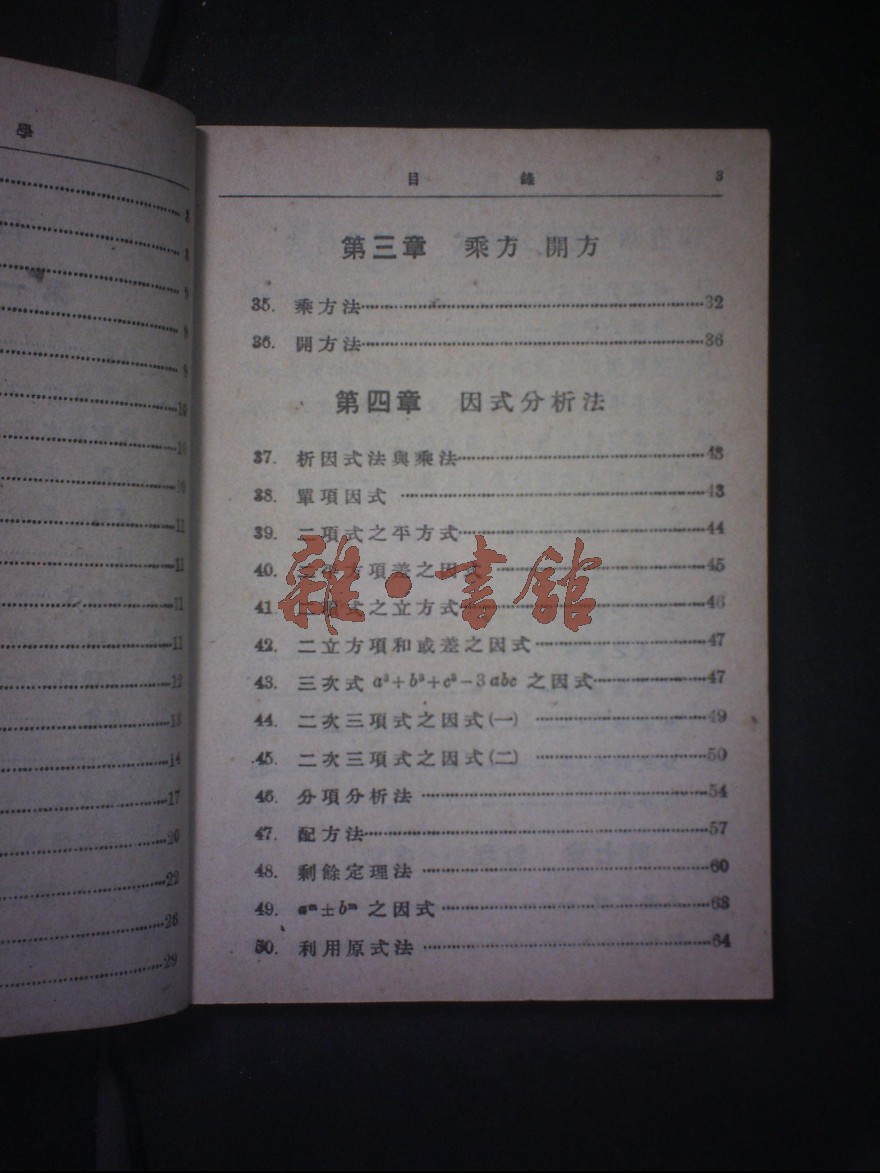 8
8
9
9
9
10
10
10
11
11
11
11
12
13
14
17
20
22
26
29
目錄 3
第三章 乘方 開方
35. 乘方法 32
36. 開方法 36
第四章 因式分析法
37. 析因式法與乘法 43
38. 單項因式 43
39. 二項式之平方式 44
40. 二平方項差之因式 45
41. 二項式之立方式 46
42. 二立方項和或差之因式 47
43. 三次式 a³+b³+c³−3abc 之因式 47
44. 二次三項式之因式(一) 49
45. 二次三項式之因式(二) 50
46. 分項分析法 54
47. 配方法 57
48. 剩餘定理法 60
49. aᵐ±bᵐ 之因式 63
50. 利用原式法 64
雜·書館